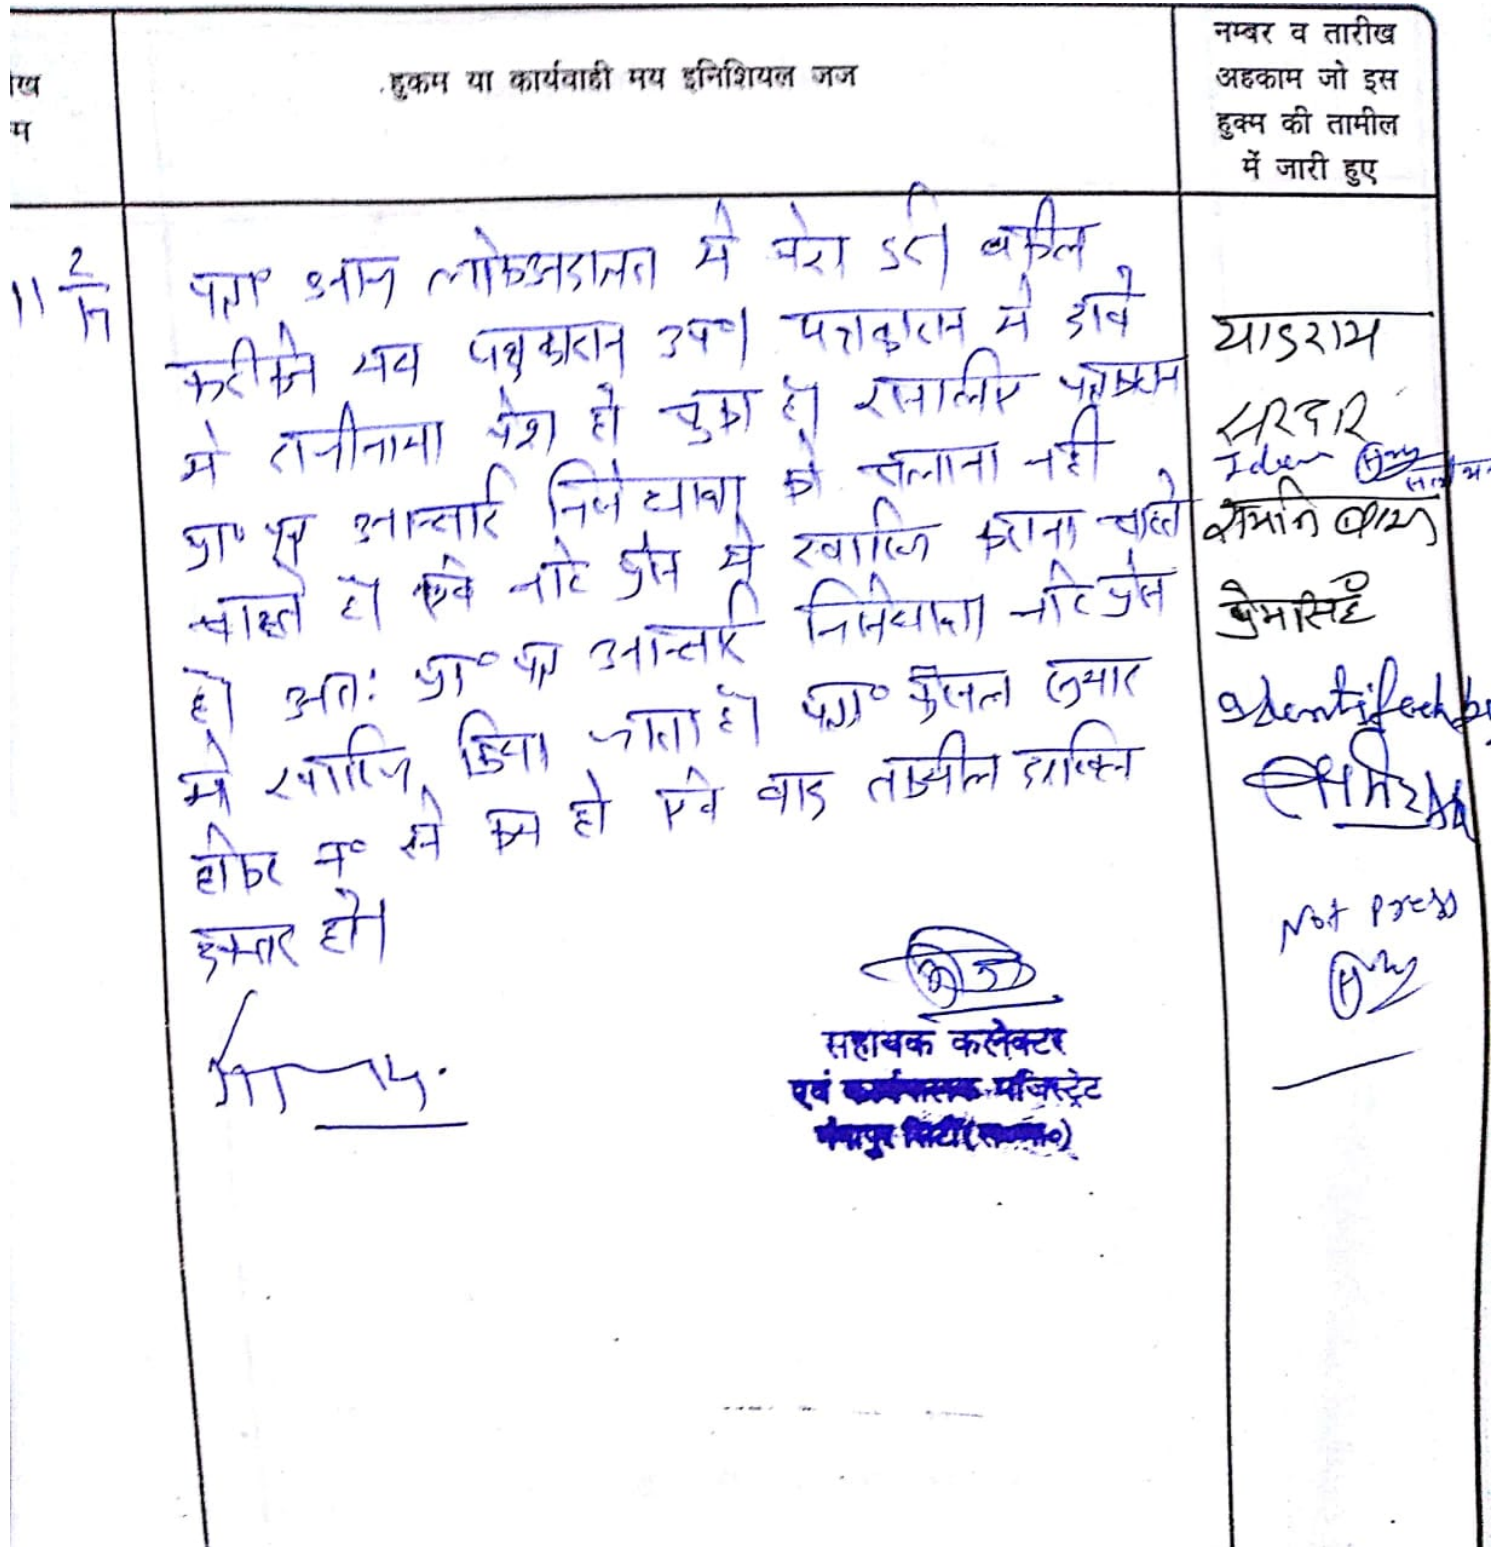 हुकम या कार्यवाही मय इनिशियल जज
नम्बर व तारीख
अहकाम जो इस
हुक्म की तामील
में जारी हुए
11 2/17
पत्रा० आज लोकअदालत मे पेश हुई। वकील
फरीकेन मय पक्षकारान उप०। पक्षकारान मे दावे
मे राजीनामा पेश हो चुका है।
प्रा० पत्र अन्तरिम निषेधाज्ञा को चलाना नही
चाहते है। एवं नोट प्रेस मे खारिज कराना चाहते
है। अतः प्रा० पत्र अन्तरिम निषेधाज्ञा नोट प्रेस
मे खारिज किया जाता है। पत्रा० फैसल शुमार
होकर न० से कम हो एवं बाद तकमील दाखिल
दफ्तर हो।
सहायक कलेक्टर
एवं मजिस्ट्रेट
यादराम
सरदार
प्रेमसिंह
Identified by
Not press